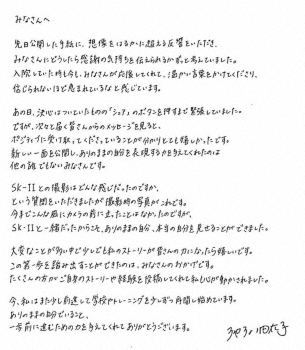 みなさんへ
先日公開した手紙に、想像をはるかに超える反響をいただき、
みなさんにどうしたら感謝の気持ちを伝えられるか ずっと考えていました。
入院していた時も今も、みなさんが応援してくれて、温かい言葉をかけてくださり、
信じられないほど恵まれているなと感じています。
あの日、決心はついていたものの「シェア」のボタンを押すまで緊張していました。
ですが、次々と届く皆さんからのメッセージを見ると、
ポジティブに受け取ってくださっていることが分かりとても嬉しかったです。
新しい一面を公開し、ありのままの自分を表現する力を与えてくれたのは
他の誰でもないみなさんです。
SK-IIとの撮影はどんな感じだったのですか、
という質問をいただきましたが撮影時の写真がこれです。
今までこんな風にカメラの前に出ったことはなかったのですが、
SK-IIと一緒だったからこそ、ありのままの自分、本当の自分を見せることができました。
大変なことが多い中で少しでも私のストーリーが皆さんの力になったら嬉しいです。
この第一歩を踏み出すことができたのは、みなさんのおかげです。
たくさんの方がご自身のストーリーや経験を投稿してくれて私も心が動かされました。
今、私はまた少し前進して学校やトレーニングを少しずつ再開し始めています。
ありのままの自分でいること、
一歩前に進むための力を与えてくれてありがとうございます。
池江璃花子